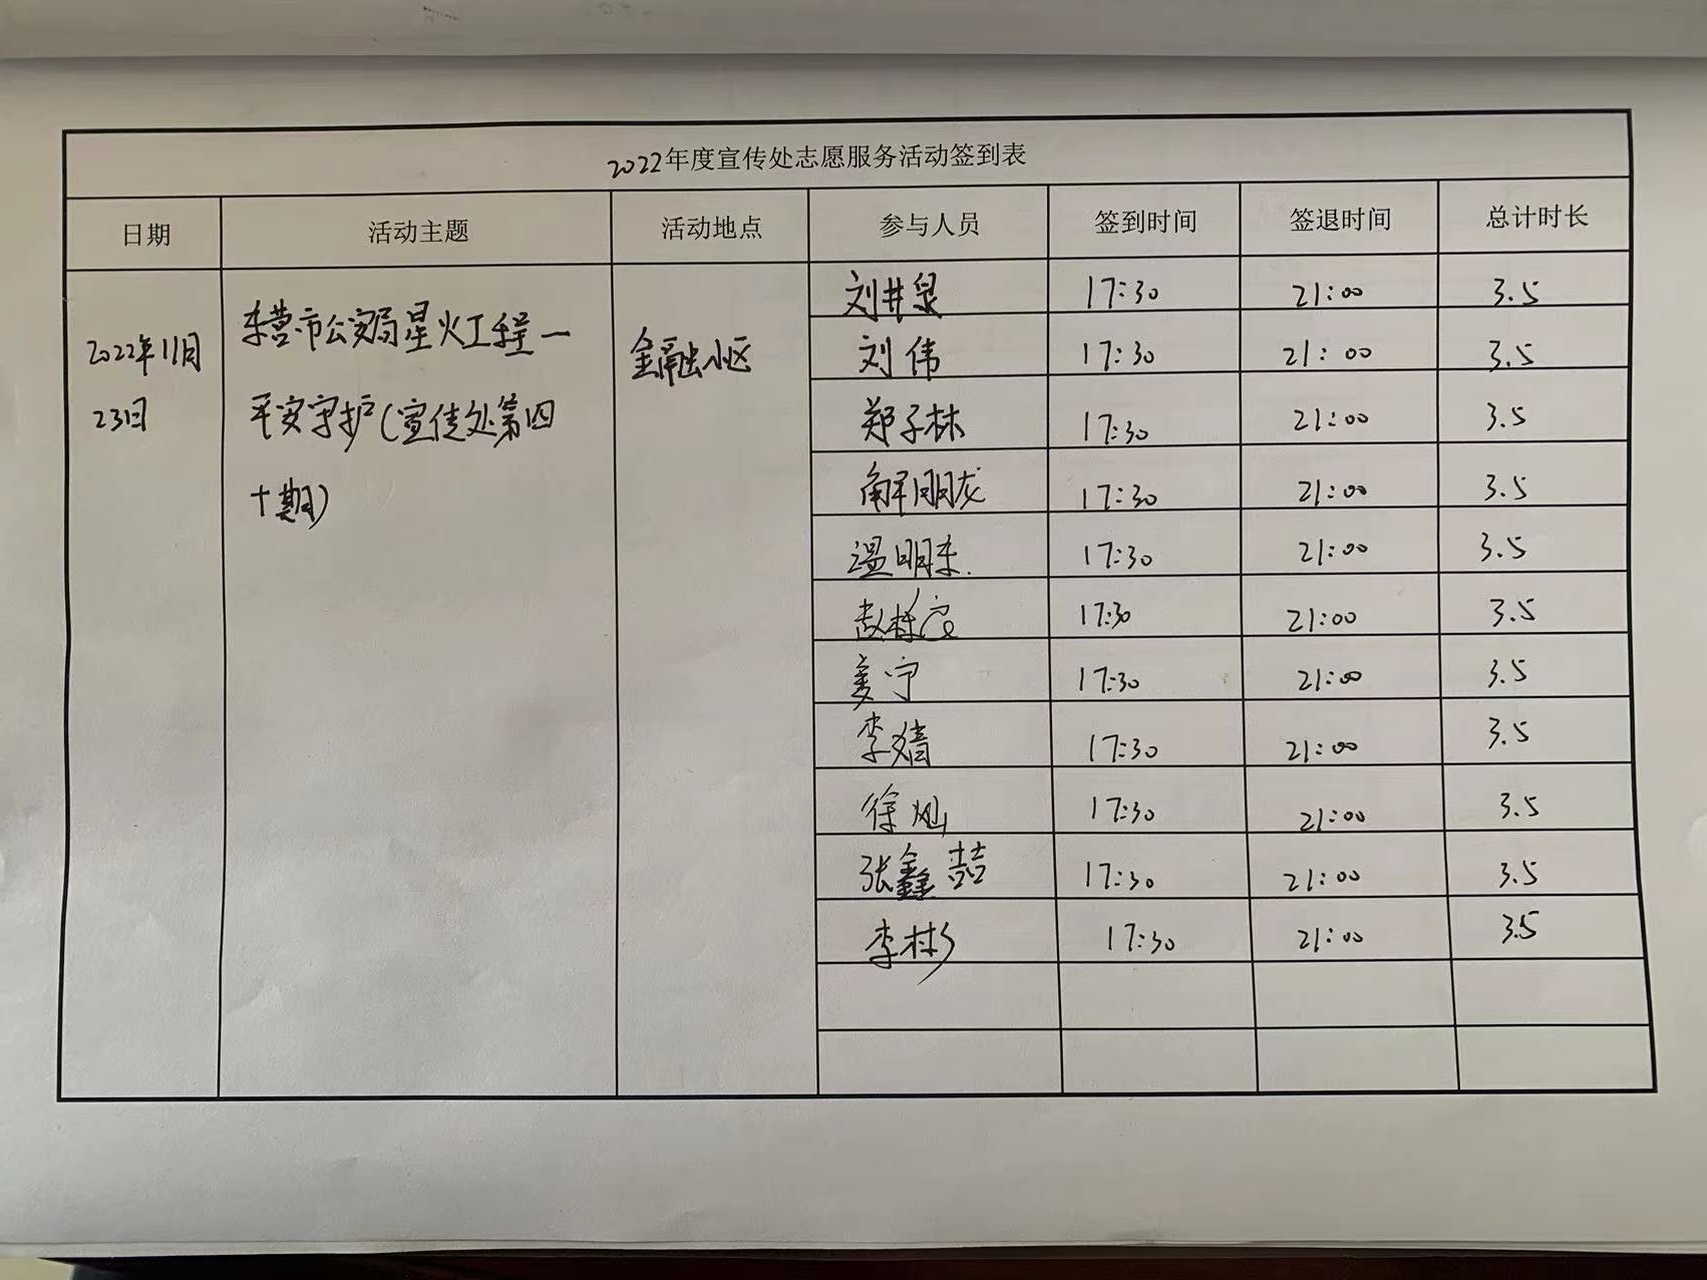 2022年度宣传处志愿服务活动签到表
日期 活动主题 活动地点 参与人员 签到时间 签退时间 总计时长
2022年11月
23日
东营市公安局星火工程一
平安守护(宣传处第四
十期)
金融小区
刘井泉 17:30 21:00 3.5
刘伟 17:30 21:00 3.5
郑子林 17:30 21:00 3.5
解朋龙 17:30 21:00 3.5
温明东 17:30 21:00 3.5
17:30 21:00 3.5
姜宁 17:30 21:00 3.5
李婧 17:30 21:00 3.5
徐灿 17:30 21:00 3.5
张鑫喆 17:30 21:00 3.5
李彬 17:30 21:00 3.5